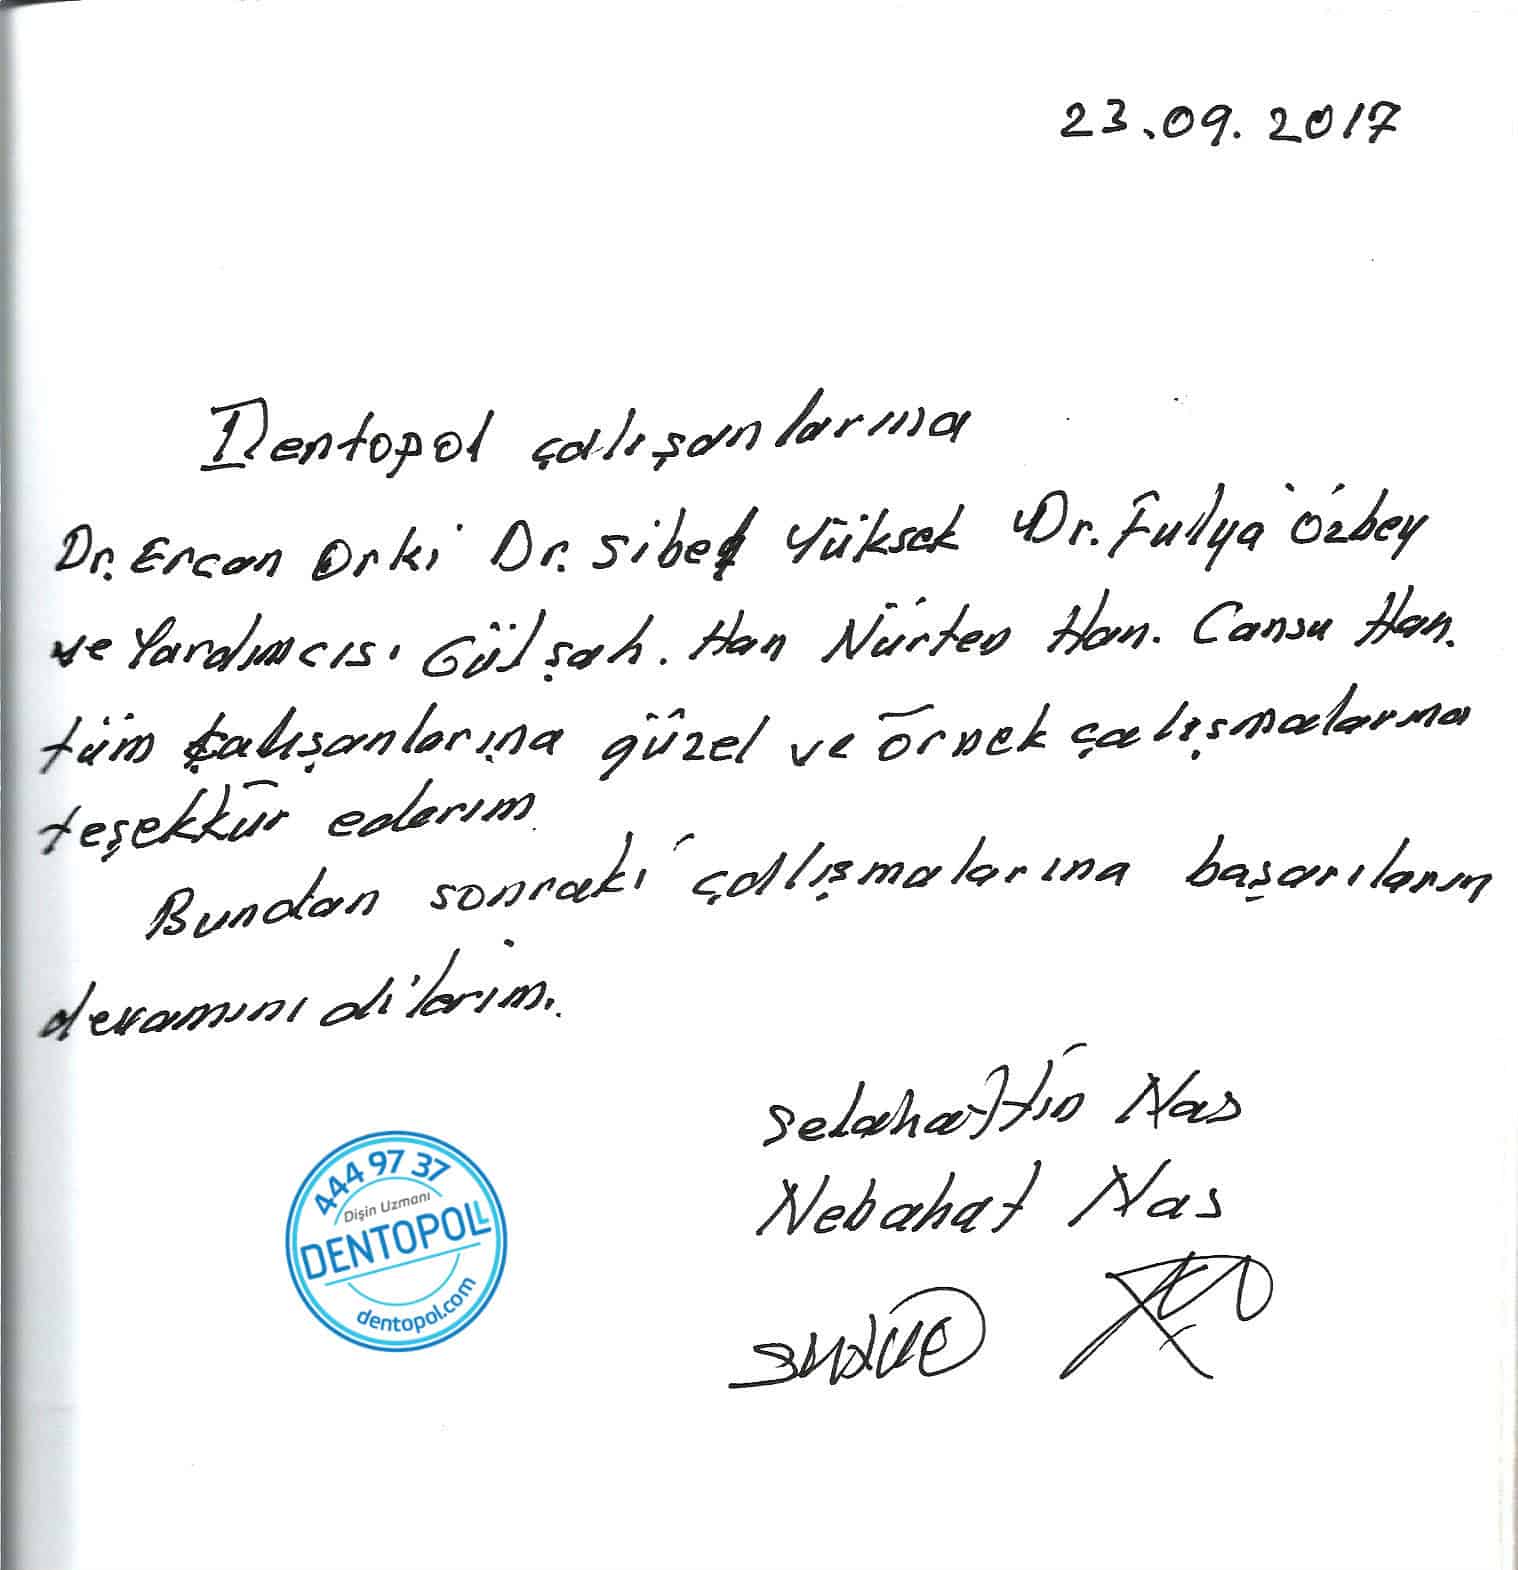 23.09.2017
Dentopol çalışanlarına
Dr. Ercan Orki Dr. Sibel Yüksek Dr. Fulya Özbey
ve Yardımcısı Gülşah. Han Nürten Han. Cansu Han.
tüm çalışanlarına güzel ve örnek çalışmalarına
teşekkür ederim
Bundan sonraki çalışmalarına başarıların
devamını dilerim.
Selahattin Nas
Nebahat Nas
444 97 37
Dişin Uzmanı
DENTOPOL
dentopol.com